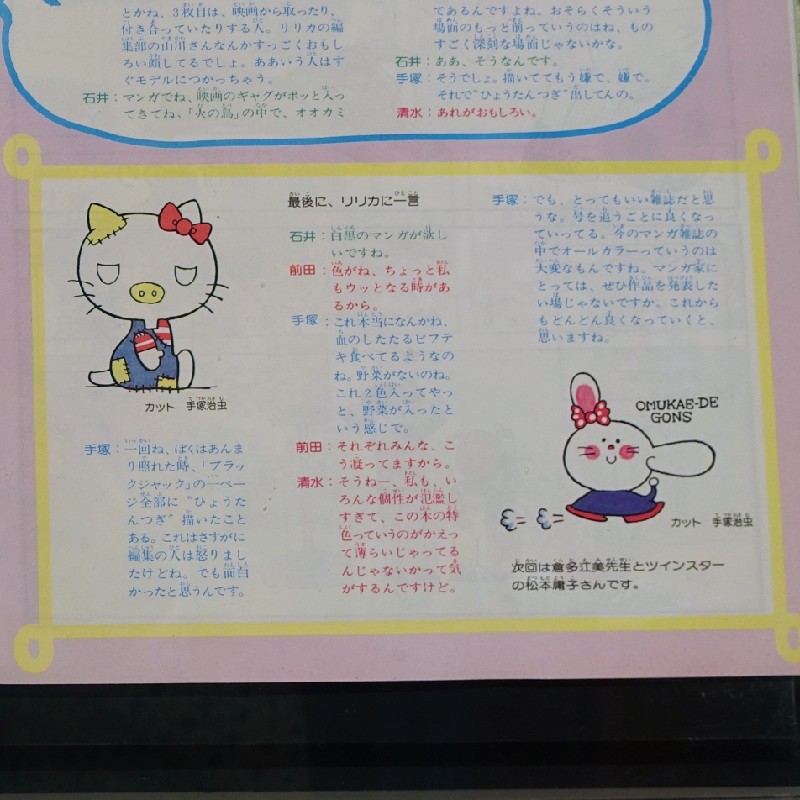 とかね、3枚目は、映画から取ったり、
付き合っていたりする人。リリカの編
集部の山川さんなんかすっごくおもし
ろい顔してるでしょ。ああいう人はす
ぐモデルにつかっちゃう。
石井：マンガでね、映画のギャグがポッと入っ
てきてね、「火の鳥」の中で、オオカミ
てあるんですよね。おそらくそういう
場面のもっと前っていうのはね、もの
すごく深刻な場面じゃないかな。
石井：ああ、そうなんです。
手塚：そうでしょ。描いててもう嫌で、嫌で。
それで"ひょうたんつぎ"出してんの。
清水：あれがおもしろい。
カット 手塚治虫
手塚：一回ね、ぼくはあんま
り照れた時、「ブラッ
クジャック」の一ペー
ジ全部に"ひょうた
んつぎ"描いたこと
ある。これはさすがに
編集の人は怒りまし
たけどね。でも面白
かったと思うんです。
最後に、リリカに一言
石井：白黒のマンガが欲し
いですね。
前田：色がね、ちょっと私
もウッとなる時があ
るから。
手塚：これ本当になんかね、
血のしたたるビフテ
キ食べてるようなの
ね。野菜がないのね。
これ2色入ってやっ
と、野菜が入ったと
いう感じで。
前田：それぞれみんな、こ
う凝ってますから。
清水：そうねー、私も、い
ろんな個性が氾濫し
すぎて、この本の特
色っていうのがかえっ
て薄らいじゃってる
んじゃないかって気
がするんですけど。
手塚：でも、とってもいい雑誌だと思
うな。号を追うごとに良くなっ
ていってる。今のマンガ雑誌の
中でオールカラーっていうのは
大変なもんですね。マンガ家に
とっては、ぜひ作品を発表した
い場じゃないですか。これから
もどんどん良くなっていくと、
思いますね。
OMUKAE-DE
GONS
カット 手塚治虫
次回は倉多江美先生とツインスター
の松本庸子さんです。